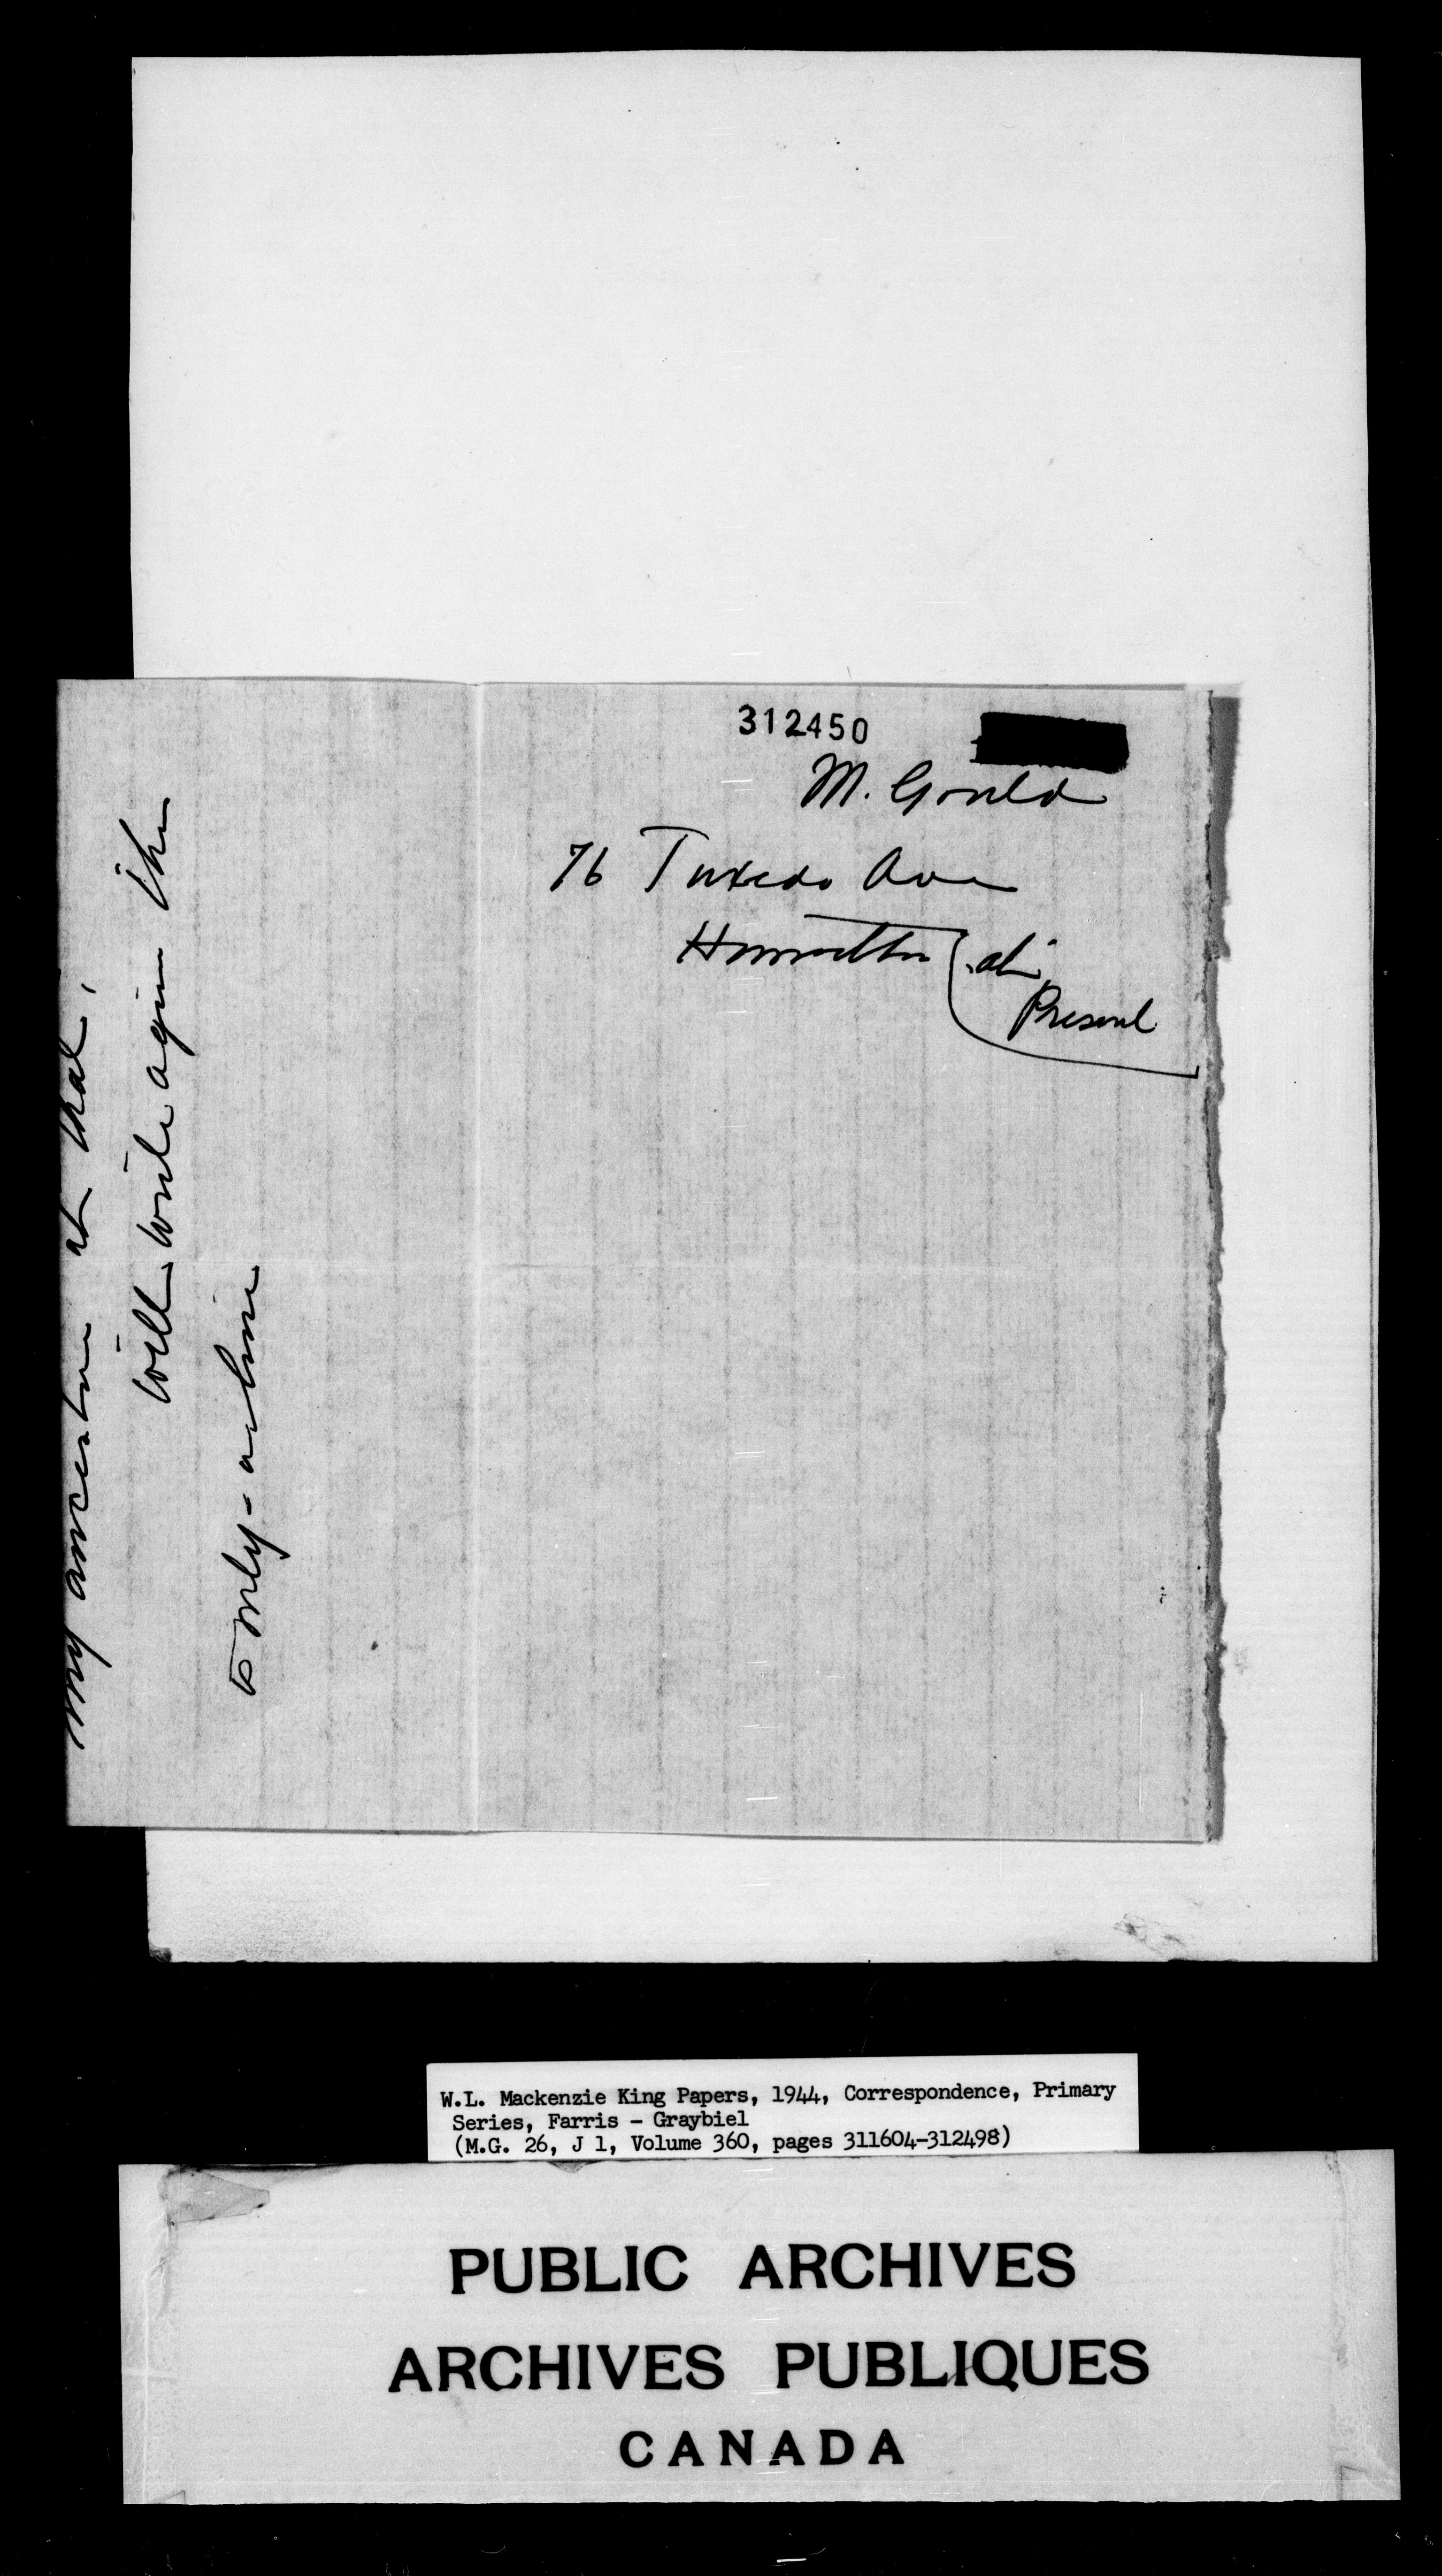 312450
M. Gould
76 Tuxedo Ave
Hamilton (at
Present
my ancestors at that,
will write again this
is only - a line
W.L. Mackenzie King Papers, 1944, Correspondence, Primary
Series, Farris - Graybiel
(M.G. 26, J 1, Volume 360, pages 311604-312498)
PUBLIC ARCHIVES
ARCHIVES PUBLIQUES
CANADA